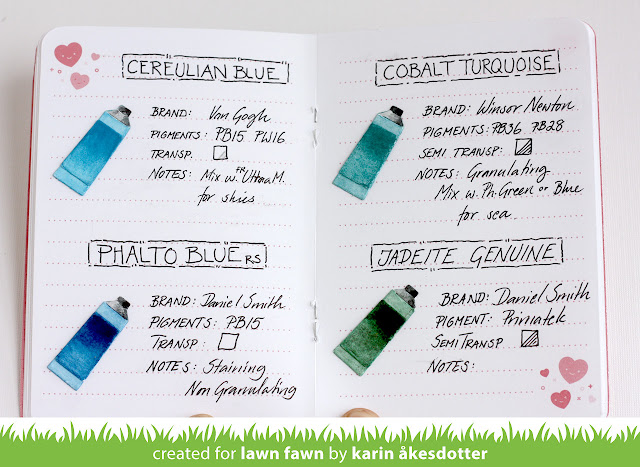 CEREULIAN BLUE
BRAND: Van Gogh
PIGMENTS: PB15 PW16
TRANSP.
NOTES: Mix w. FR UltraM.
for skies
PHALTO BLUE RS
BRAND: Daniel Smith
PIGMENTS: PB15
TRANSP:
NOTES: Staining
Non Granulating
COBALT TURQUOISE
BRAND: Winsor Newton
PIGMENTS: PB36 PB28
SEMI TRANSP:
NOTES: Granulating
Mix w. Ph. Green or Blue
for sea
JADEITE GENUINE
BRAND: Daniel Smith
PIGMENT: Primatek
SEMI TRANSP
NOTES:
created for lawn fawn by karin åkesdotter